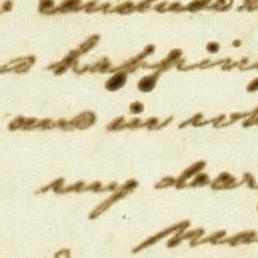 conclude
happin
and in wh
my dear
Ma